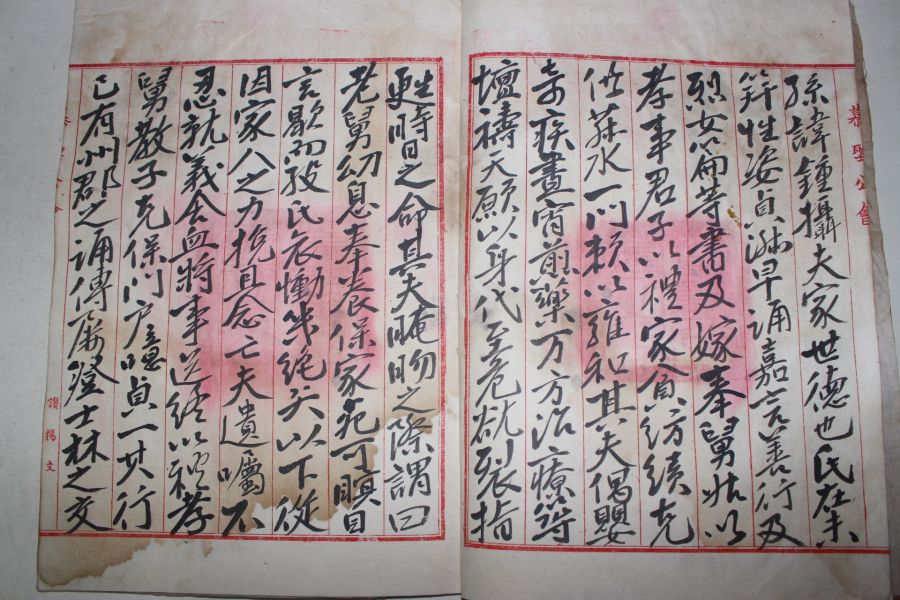 慕聖公會
孫諱鍾攝夫家世德也氏在未
笄性姿貞淑早誦嘉言善行及
烈女篇等書及嫁奉舅姑以
孝事君子以禮家貧紡績克
供菽水一門賴以雍和其夫偶嬰
奇疾晝宵煎藥万方治療築
壇禱天願以身代至危欲裂指
甦時日之命其夫晻昒之際謂曰
老舅幼息奉養保家死可瞑目
言歇而歿氏哀慟幾絶矢以下從
因家人之力挽且念亡夫遺囑不
忍就義含血將事送終以禮孝
舅教子克保門戶噫貞一其行
已有州郡之誦傳屢登士林之交
讚揚文